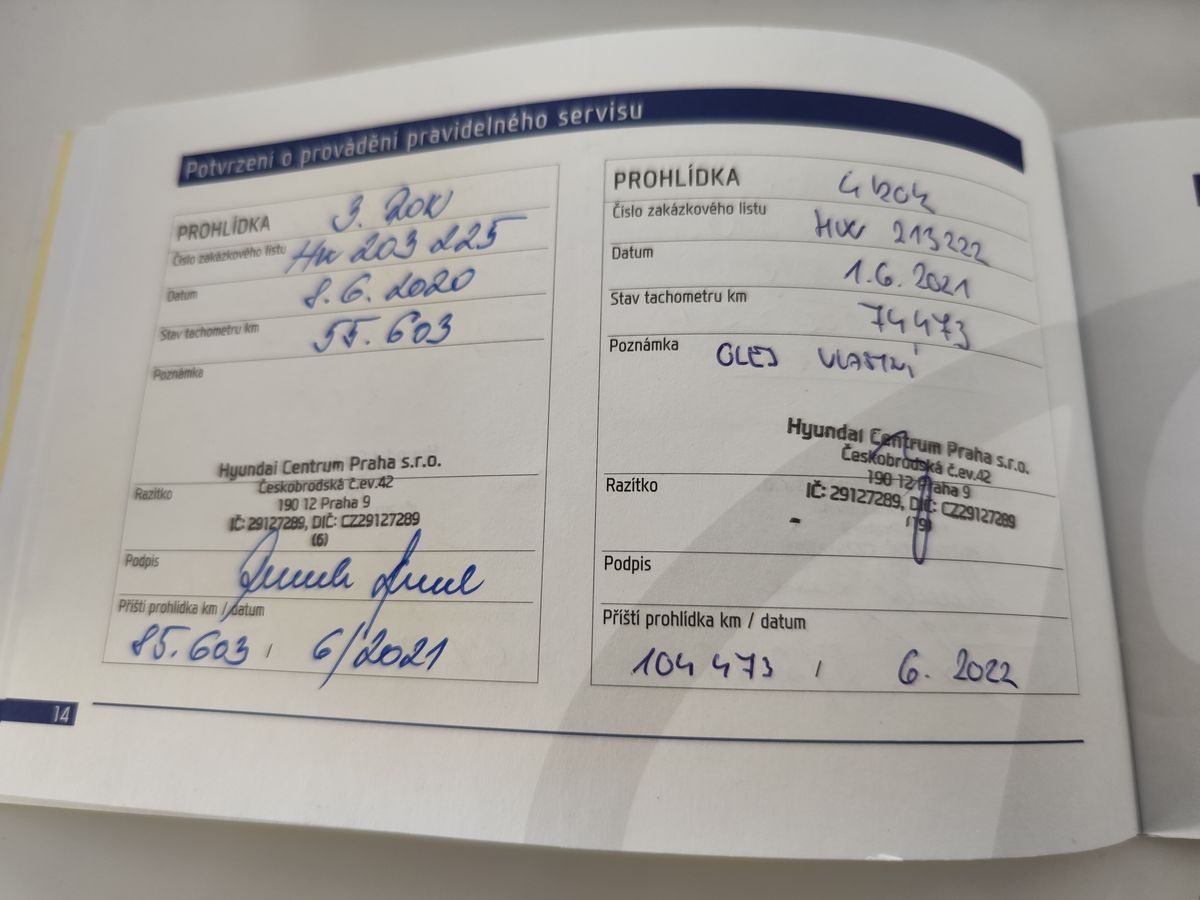 Potvrzení o provádění pravidelného servisu
PROHLÍDKA 3. ROK
Číslo zakázkového listu HW 203 225
Datum 8.6.2020
Stav tachometru km 55.603
Poznámka
Hyundai Centrum Praha s.r.o.
Českobrodská č.ev.42
Razítko
190 12 Praha 9
IČ: 29127289, DIČ: CZ29127289
(6)
Podpis
Příští prohlídka km / datum
85.603 / 6/2021
PROHLÍDKA 4 ROK
Číslo zakázkového listu HW 213222
Datum 1.6.2021
Stav tachometru km 74473
Poznámka OLEJ VLASTNÍ
Hyundai Centrum Praha s.r.o.
Českobrodská č.ev.42
Razítko
190 12 Praha 9
IČ: 29127289, DIČ: CZ29127289
(19)
Podpis
Příští prohlídka km / datum
104 473 / 6. 2022
14